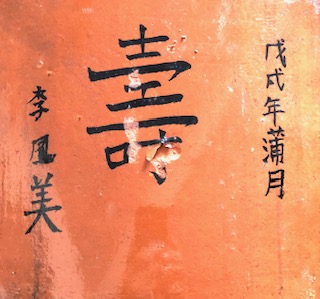 戊戌年蒲月
壽
李風美